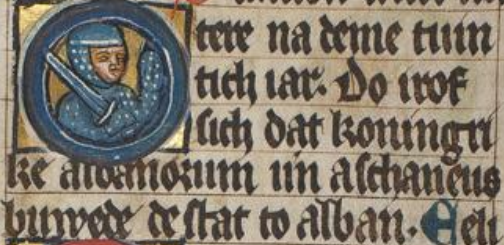 tere na deme tuin
tich iar. Do irof
sich dat koningri
ke albanorum un aschaneus
buwede de stat to alban.